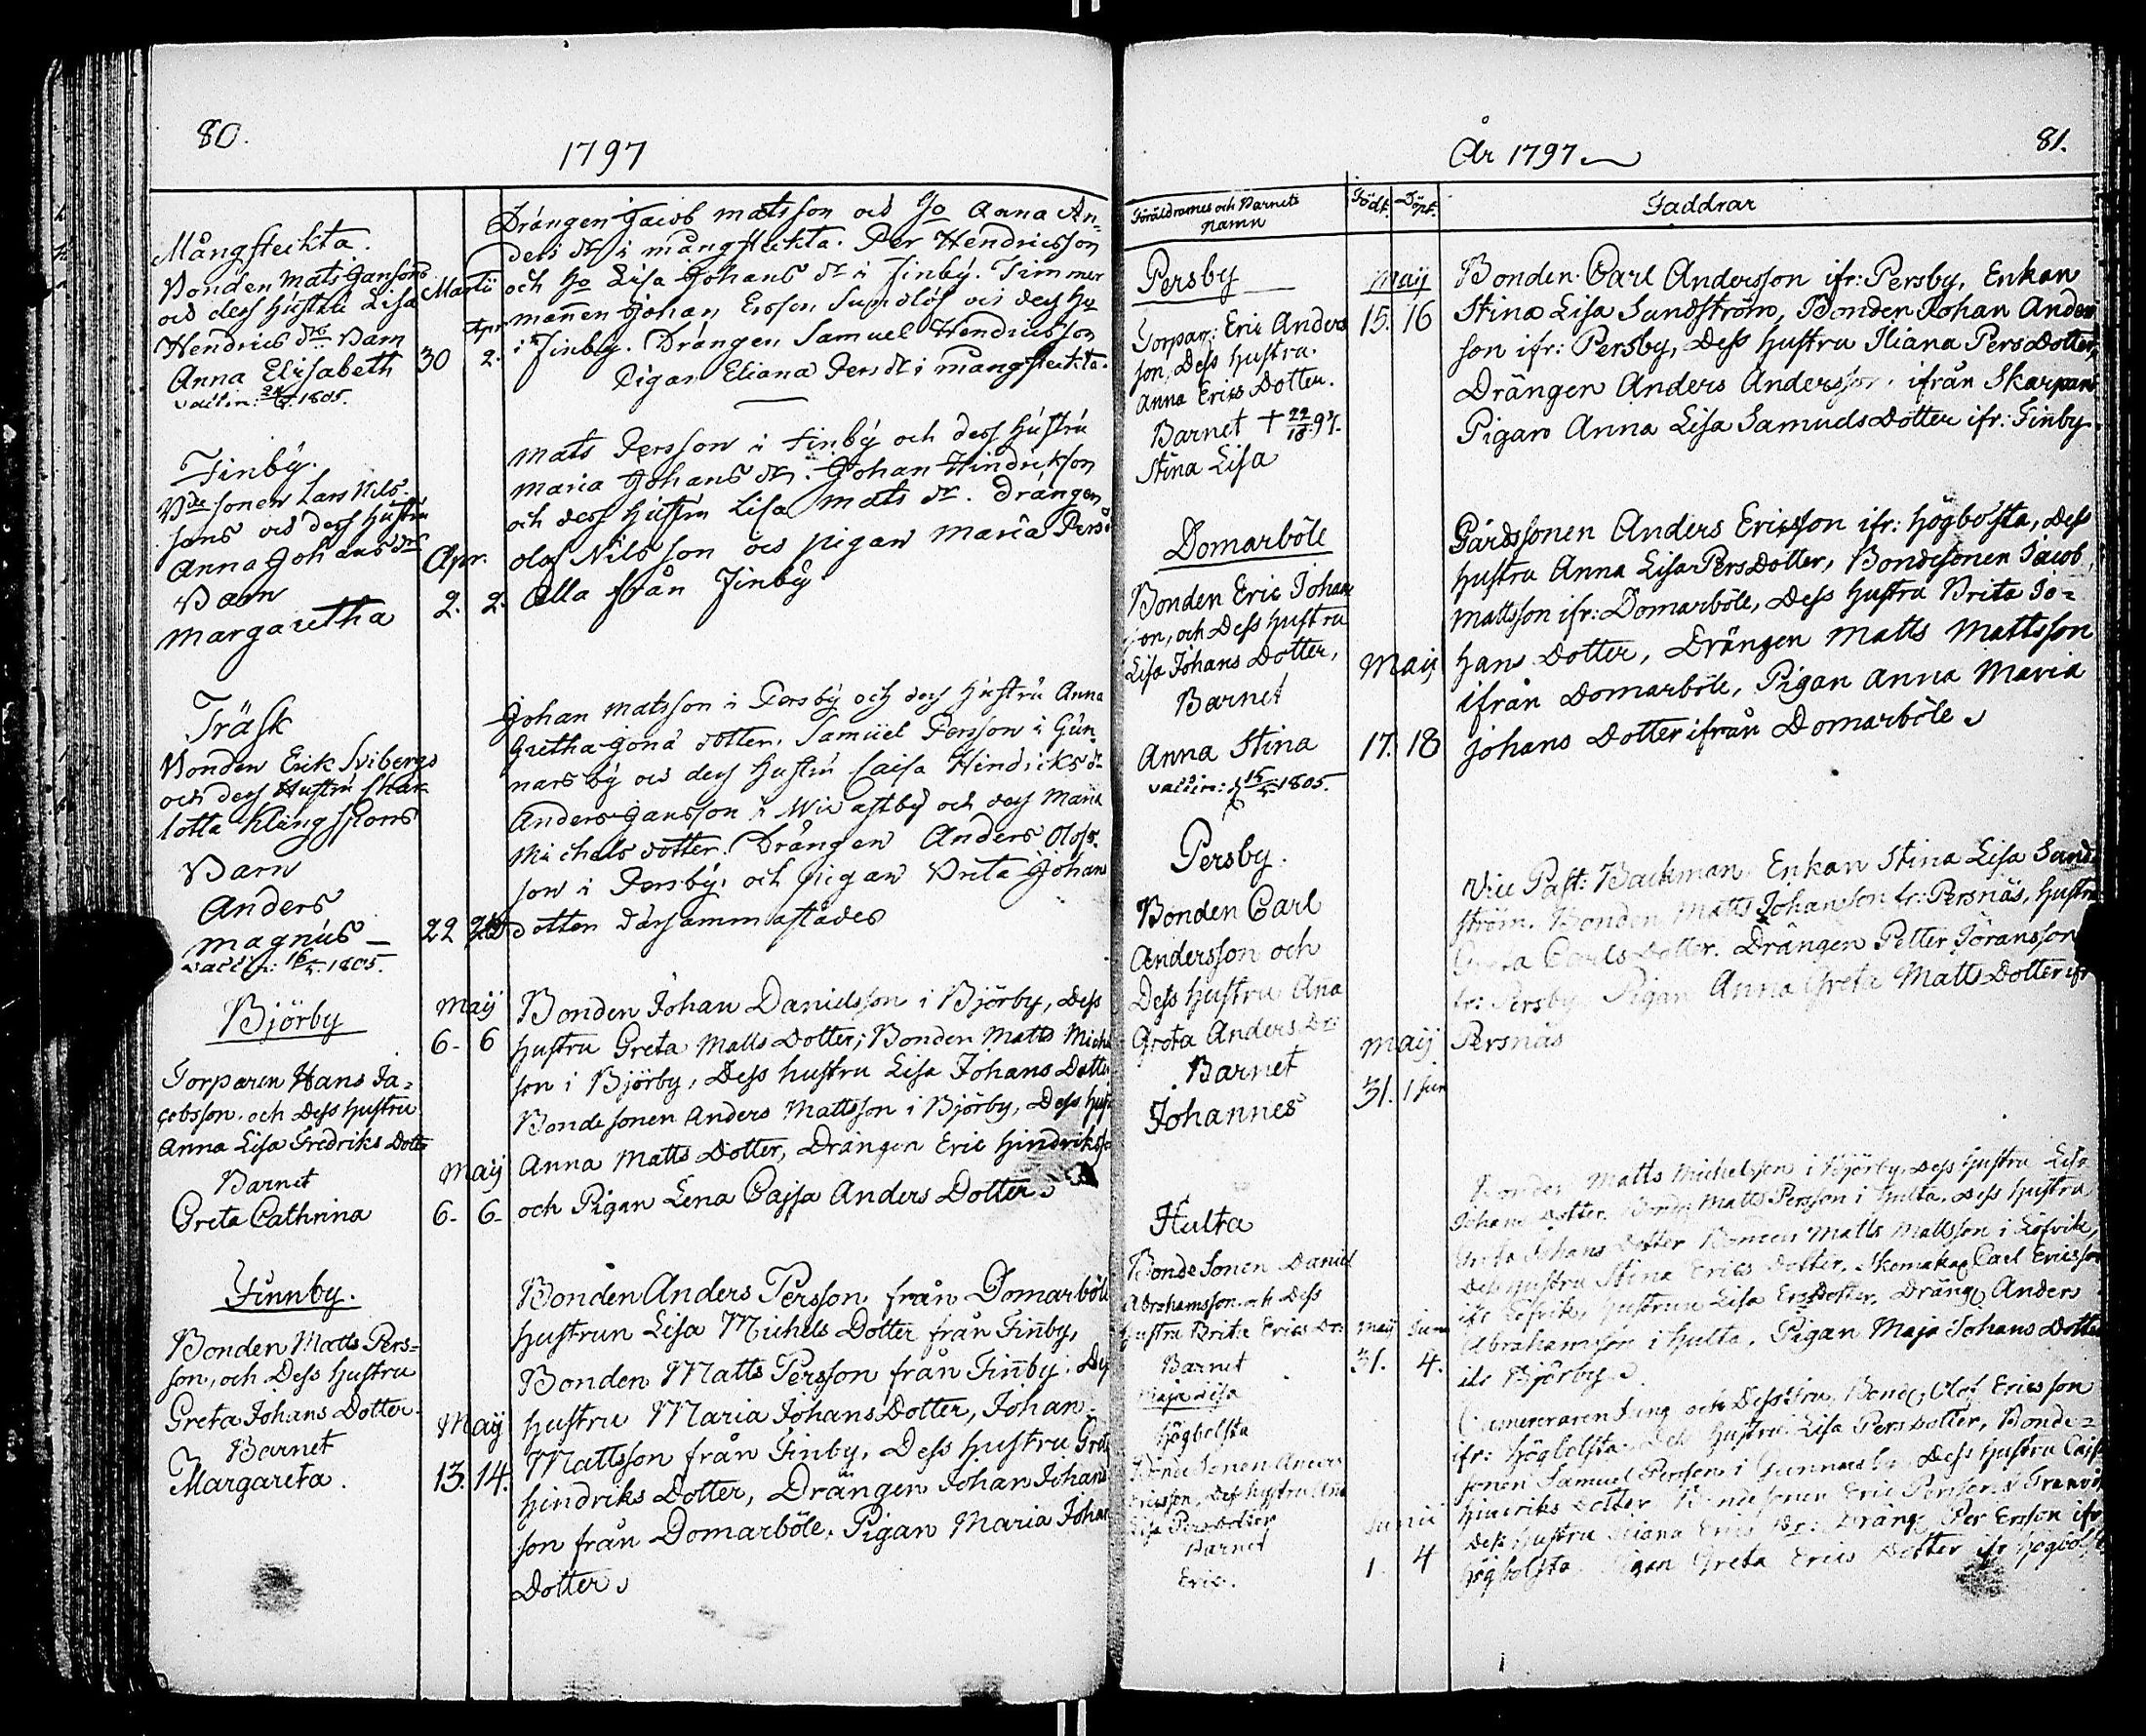 80.
1797
Mångsteckta.
Bonden Mats Jansons
och dess hustru Lisa
Hendrics dr. Barn
Anna Elisabeth
vaccin: 1805.
Martii
Apr.
30 2.
Drängen Jacob Matsson och Ho Anna An-
ders dr i Mångsteckta. Per Hendricsson
och Ho Lisa Johans dr i Finby. Timmer
mannen Johan Ersson Sundlöf och dess Ho
i Finby. Drängen Samuel Hendricsson
Pigan Eliana Pers dr i mångsteckta.
Finby.
Bde sonen Lars Nils
sons och dess hustru
Anna Johans dr
Barn
Margaretha
Apr.
2. 2.
Mats Persson i Finby och dess hustru
Maria Johans dr. Johan Hindrikson
och dess hustru Lisa Mats dr. Drängen
Olof Nilsson och pigan Maria Pers
Alla från Finby
Träsk
Bonden Erik Svibergs
och dess Hustru Char
lotta Klingspors
Barn
Anders
Magnus
vaccin: 16/5. 1805.
22
Johan Matsson i Persby och dess hustru Anna
Gretha Jons dotter. Samuel Persson i Gun
narsby och dess hustru Caisa Hindricks dr
Anders Jansson i Wivastby och dess Maria
Michels dotter. Drängen Anders Olofs
son i Persby. och pigan Brita Johans
dotter därsammastädes
Björby
Torparen Hans Ja-
cobsson, och Dess hustru
Anna Lisa Fredriks Dotter
Barnet
Greta Cathrina
Maij
6. 6
Maij
6. 6.
Bonden Johan Danielsson i Björby, Dess
hustru Greta Matts Dotter; Bonden Matts Michel
son i Björby, Dess hustru Lisa Johans Dotter
Bondesonen Anders Mattsson i Björby, Dess hust
Anna Matts Dotter, Drängen Eric Hindriksso
och Pigan Lena Cajsa Anders Dotter
Finnby.
Bonden Matts Pers-
son, och Dess hustru
Greta Johans Dotter.
Barnet
Margareta.
Maij
13. 14.
Bonden Anders Persson från Domarböle
hustrun Lisa Michels Dotter från Finby,
Bonden Matts Persson från Finby. Dess
hustru Maria Johans Dotter, Johan
Mattsson från Finby, Dess hustru Greta
Hindriks Dotter, Drängen Johan Johans
son från Domarböle, Pigan Maria Johans
Dotter
År 1797
81.
Föräldrarnes och Barnets
Namn
Född. Döpt.
Faddrar
Persby
Torpar: Eric Anders
son, Dess hustru.
Anna Erics Dotter.
Barnet + 22/18. 97.
Stina Lisa
Maij
15. 16
Bonden Carl Andersson ifr: Persby, Enkan
Stina Lisa Sundström, Bonden Johan Anders
son ifr: Persby, Dess hustru Iliana Pers Dotter,
Drängen Anders Andersson ifrån Skarpans
Pigan Anna Lisa Samuels Dotter ifr: Finby
Domarböle
Bonden Eric Johans
son, och Dess hustru
Lisa Johans Dotter,
Barnet
Anna Stina
vaccin: 1805.
Maij
17. 18
Gårdssonen Anders Ericsson ifr: Högbolsta, Dess
hustru Anna Lisa Pers Dotter, Bondesonen Jacob
Mattsson ifr: Domarböle, Dess hustru Brita Jo-
hans Dotter, Drängen Matts Mattsson
ifrån Domarböle, Pigan Anna Maria
Johans Dotter ifrån Domarböle
Persby.
Bonden Carl
Andersson och
Dess hustru Ana
Greta Anders Dr:
Barnet
Johannes
Maij
31. 1 Jun
Vice Past: Backman. Enkan Stina Lisa Sund
ström. Bonden Matts Johansson fr: Persnäs, hustru
Greta Carls Dotter. Drängen Petter Jöransson
fr: Persby. Pigan Anna Greta Matts Dotter ifr
Persnäs
Hulta
Bondesonen Daniel
Abrahamsson och Dess
hustru Brita Erics Dr:
Barnet
Maja Lisa
Maij Junii
31. 4.
Bonden Matts Michelsson i Björby, Dess hustru Lisa
Johans Dotter. Bonden Matts Persson i Hulta, Dess hustru
Greta Johans Dotter Bonden Matts Mattsson i Löfvik,
Dess hustru Stina Erics Dotter, Skomakar Carl Ericsson
ifr Löfvik, hustrun Lisa Ers Dotter. Dräng Anders
Abrahamsson i Hulta, Pigan Maja Johans Dotter
ifr Björby.
Högbolsta
Bondesonen Anders
Ericsson, Dess hustru Ana
Lisa Pers Dotter
Barnet
Eric.
Junii
1. 4
och Dess Fru, Bond: Olof Ericsson
ifr: Högbolsta. Dess hustru Lisa Pers Dotter, Bonde-
sonen Samuel Persson i Gunnarsby, Dess hustru Cajsa
Hindriks Dotter Bondesonen Eric Persson i Tranvik
Dess hustru Iliana Erics Dr: Dräng Per Ersson ifr
Högbolsta. Pigan Greta Erics Dotter ifr Högbolsta